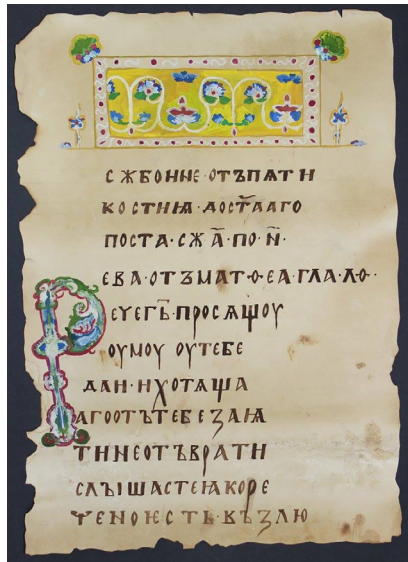 СѪБОННЕ·ОТЪПѦТИ
КОСТИѨ·АОСТⷶААГО
ПОСТА·СѪⷣА·ПО·Н҃·
ЕВА·ОТЪМАТ·Ѳ·ЕА·ГЛА·ЛѲ·
РЕУЕГЬ·ПРОСѦЩОУ
ОУМОУ ОУТЕБЕ
ДАИ·НХОТѦЩА
АГООТЪТЕБЕЗАѨ
ТИНЕОТЪВРАТИ
СЛЫШАСТЕꙖКОРЕ
ЧЕНОѤСТЬ·ВЪЗЛЮ